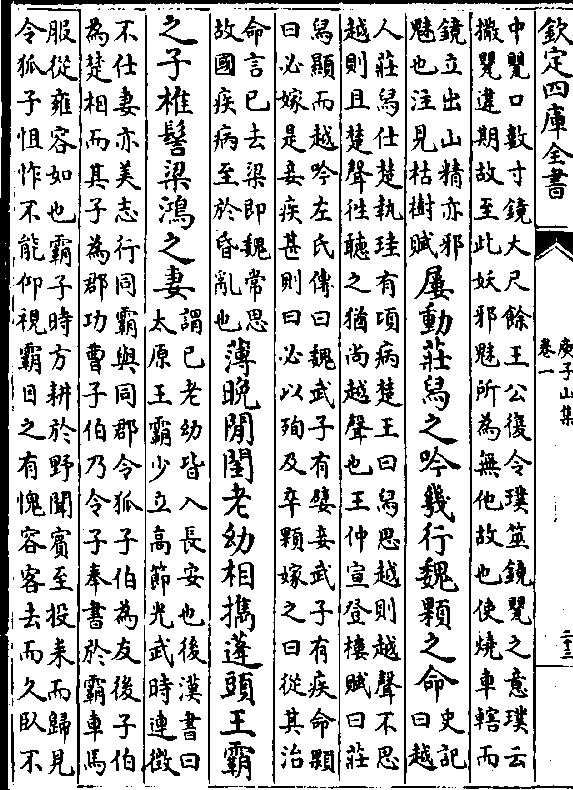 欽定四庫全書
庾子山集
卷一
二十三
中甖口數寸鏡大尺餘王公復令璞筮鏡甖之意璞云
撤甖違期故至此妖邪魅所為無他故也使燒車轄而
鏡立出山精亦邪
魅也注見枯樹賦
屢動莊舄之吟幾行魏顆之命
史記
曰越
人莊舄仕楚執珪有項病楚王曰舄思越則越聲不思
越則且楚聲徃聽之猶尚越聲也王仲宣登樓賦曰莊
舄顯而越吟左氏傳曰魏武子有嬖妾武子有疾命顆
曰必嫁是妾疾甚則曰必以殉及卒顆嫁之曰從其治
命言已去梁即魏常思
故國疾病至於昏亂也
薄晩閒閨老幼相擕蓬頭王霸
之子椎髻梁鴻之妻
謂已老幼皆入長安也後漢書曰
太原王霸少立髙節光武時連徴
不仕妻亦美志行同霸與同郡令狐子伯為友後子伯
為楚相而其子為郡功曹子伯乃令子奉書於霸車馬
服從雍容如也霸子時方耕於野聞賓至投耒而歸見
令狐子怚怍不能仰視霸目之有愧容客去而久臥不